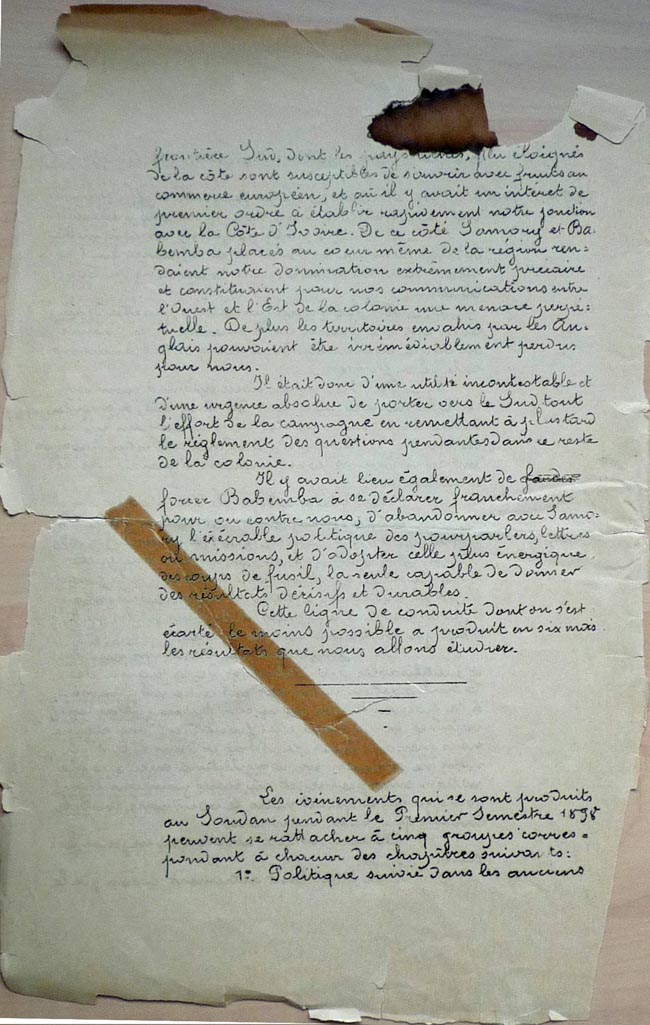 frontière Sud, dont les pays riches, peu éloignés
de la côte sont susceptibles de s'ouvrir avec fruits au
commerce européen, et où il y avait un intéret de
premier ordre à établir rapidement notre jonction
avec la Côte d'Ivoire. De ce côté Samory et Ba-
bemba placés au coeur même de la région ren-
daient notre domination extrêmement précaire
et constituaient pour nos communications entre
l'Ouest et l'Est de la colonie une menace perpé-
tuelle. De plus les territoires envahis par les An-
glais pouvaient être irrémédiablement perdus
pour nous.
Il était donc d'une utilité incontestable et
d'une urgence absolue de porter vers le Sud tout
l'effort de la campagne en remettant à plus tard
le réglement des questions pendantes dans le reste
de la colonie.
Il y avait lieu également de
forcer Babemba à se déclarer franchement
pour ou contre nous, d'abandonner avec Samo-
ry l'exécrable politique des pourparlers, lettres
ou missions, et d'adopter celle plus énergique
des coups de fusil, la seule capable de donner
des résultats décisifs et durables.
Cette ligne de conduite dont on s'est
écarté le moins possible a produit en six mois
les résultats que nous allons étudier.
Les événements qui se sont produits
au Soudan pendant le Premier Semestre 1898
peuvent se rattacher à cinq groupes corres-
pondant à chacun des chapitres suivants:
1º. Politique suivie dans les anciens